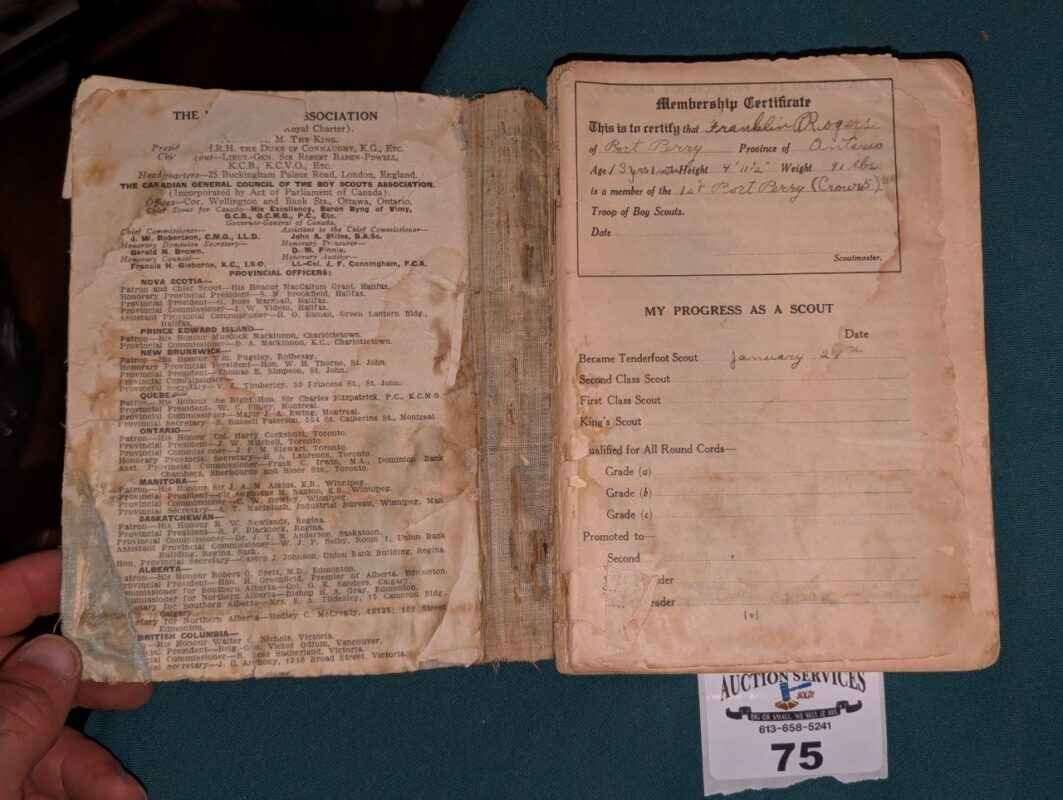 THE ASSOCIATION
Royal Charter).
M. The King.
H.R.H. The Duke of Connaught, K.G., Etc.
Lieut.-Gen. Sir Robert Baden-Powell,
K.C.B., K.C.V.O., Etc.
Headquarters—25 Buckingham Palace Road, London, England.
THE CANADIAN GENERAL COUNCIL OF THE BOY SCOUTS ASSOCIATION.
(Incorporated by Act of Parliament of Canada).
Offices—Cor. Wellington and Bank Sts., Ottawa, Ontario.
Chief Scout for Canada—His Excellency, Baron Byng of Vimy,
G.C.B., G.C.M.G., P.C., Etc.
Governor-General of Canada.
Chief Commissioner—
J. W. Robertson, C.M.G., LL.D.
Honorary Dominion Secretary—
Gerald H. Brown.
Honorary Counsel—
Francis H. Gisborne, K.C., I.S.O.
Assistant to the Chief Commissioner—
John A. Stiles, B.A.Sc.
Honorary Treasurer—
D. M. Finnie.
Honorary Auditor—
Lt.-Col. J. F. Cunningham, F.C.A.
PROVINCIAL OFFICERS:
NOVA SCOTIA—
Patron and Chief Scout—His Honour MacCallum Grant, Halifax.
Honorary Provincial President—S. M. Brookfield, Halifax.
Provincial President—G. Ross Marshall, Halifax.
Provincial Commissioner—I. W. Vidito, Halifax.
Assistant Provincial Commissioner—H. O. Eaman, Green Lantern Bldg.,
Halifax.
PRINCE EDWARD ISLAND—
Patron—His Honour Murdock Mackinnon, Charlottetown.
Provincial Commissioner—D. A. Mackinnon, K.C., Charlottetown.
NEW BRUNSWICK—
Patron—His Honour Wm. Pugsley, Rothesay.
Honorary Provincial President—Hon. W. H. Thorne, St. John.
Provincial President—Thomas E. Simpson, St. John.
Provincial Commissioner—
Provincial Secretary—V. Timberley, 50 Princess St., St. John.
QUEBEC—
Patron—His Honour the Right Hon. Sir Charles Fitzpatrick, P.C., K.C.M.G.
Provincial President—W. C. Finley, Montreal.
Provincial Commissioner—Major J. A. Ewing, Montreal.
Provincial Secretary—E. Russell Paterson, St. Catherine St., Montreal
ONTARIO—
Patron—His Honour Col. Harry Cockshutt, Toronto.
Provincial President—J. W. Mitchell, Toronto.
Provincial Commissioner—J. F. M. Stewart, Toronto.
Honorary Provincial Secretary—H. A. Laurence, Toronto.
Asst. Provincial Commissioner—Frank C. Irwin, M.A., Dominion Bank
Chambers, Sherbourne and Bloor Sts., Toronto.
MANITOBA—
Patron—His Honour Sir J. A. M. Aikins, K.B., Winnipeg.
Provincial President—Sir Augustus M. Nanton, K.B., Winnipeg.
Provincial Commissioner—C. W. Rowley, Winnipeg.
Provincial Secretary—Industrial Bureau, Winnipeg, Man
SASKATCHEWAN—
Patron—His Honour H. W. Newlands, Regina.
Provincial President—R. P. Blacklock, Regina.
Provincial Commissioner—Dr. J. T. M. Anderson, Saskatoon.
Assistant Provincial Commissioner—W. J. P. Selby, Room 1, Union Bank
Building, Regina, Sask.
Hon. Provincial Secretary—J. Johnson, Union Bank Building, Regina
ALBERTA—
Patron—His Honour Robert G. Brett, M.D., Edmonton.
Provincial President—Hon. H. Greenfield, Premier of Alberta, Edmonton.
Commissioner for Southern Alberta—Col. G. E. Sanders, Calgary.
Commissioner for Northern Alberta—Bishop H. A. Gray, Edmonton.
for Southern Alberta—Mrs. K. A. 15 Cameron Blk,
Calgary
for Northern Alberta—Hedley C. McCready, Street
Edmonton.
BRITISH COLUMBIA—
His Honour Walter C. Nichols, Victoria.
President—Brig.-Gen. Victor Odlum, Vancouver.
Commissioner—R. Ross Sutherland, Victoria.
Secretary—J. G. Anthony, 1218 Broad Street, Victoria.
Membership Certificate
This is to certify that Franklin Rogers
of Port Perry Province of Ontario
Age 13 yrs Height 4' 11½" Weight 91 lbs
is a member of the 1st Port Perry (Crows)
Troop of Boy Scouts.
Date
Scoutmaster.
MY PROGRESS AS A SCOUT
Date
Became Tenderfoot Scout January 29th
Second Class Scout
First Class Scout
King's Scout
ualified for All Round Cords—
Grade (a)
Grade (b)
Grade (c)
Promoted to—
Second
der
rader
[v]
AUCTION SERVICES
SOLD!
BIG OR SMALL, WE SELL IT ALL
613-658-5241
75